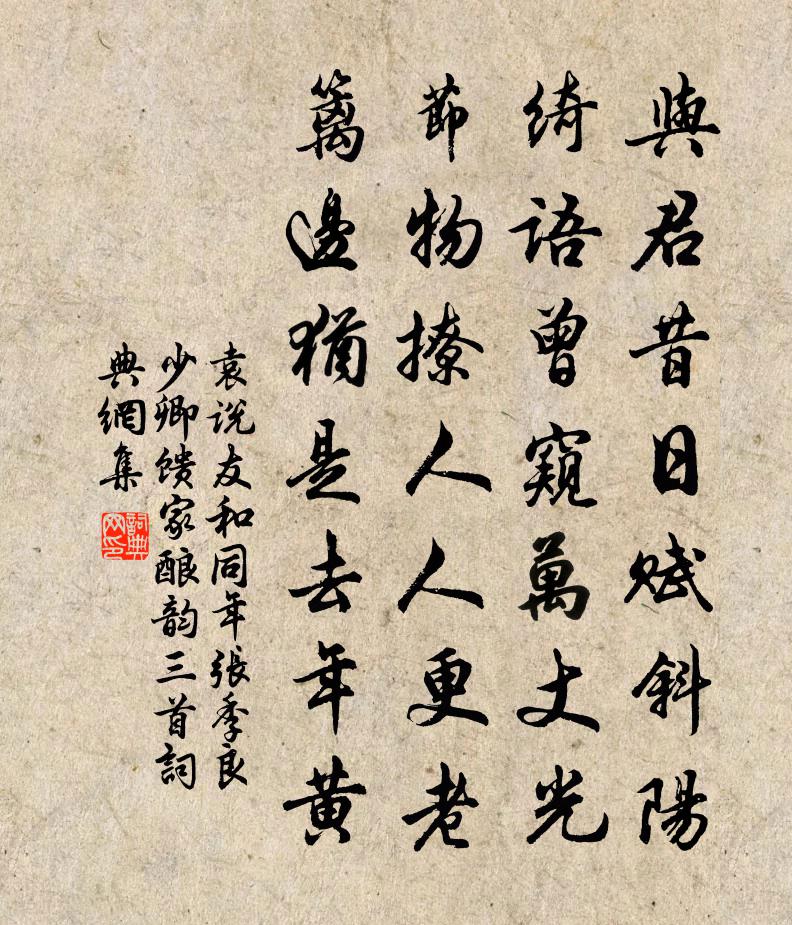 與君昔日賦斜陽
綺語曾窺萬丈光
節物撩人人更老
籬邊猶是去年黄
袁说友和同年張季良
少卿馈家酿韵三首詞
典網集
詞典网印